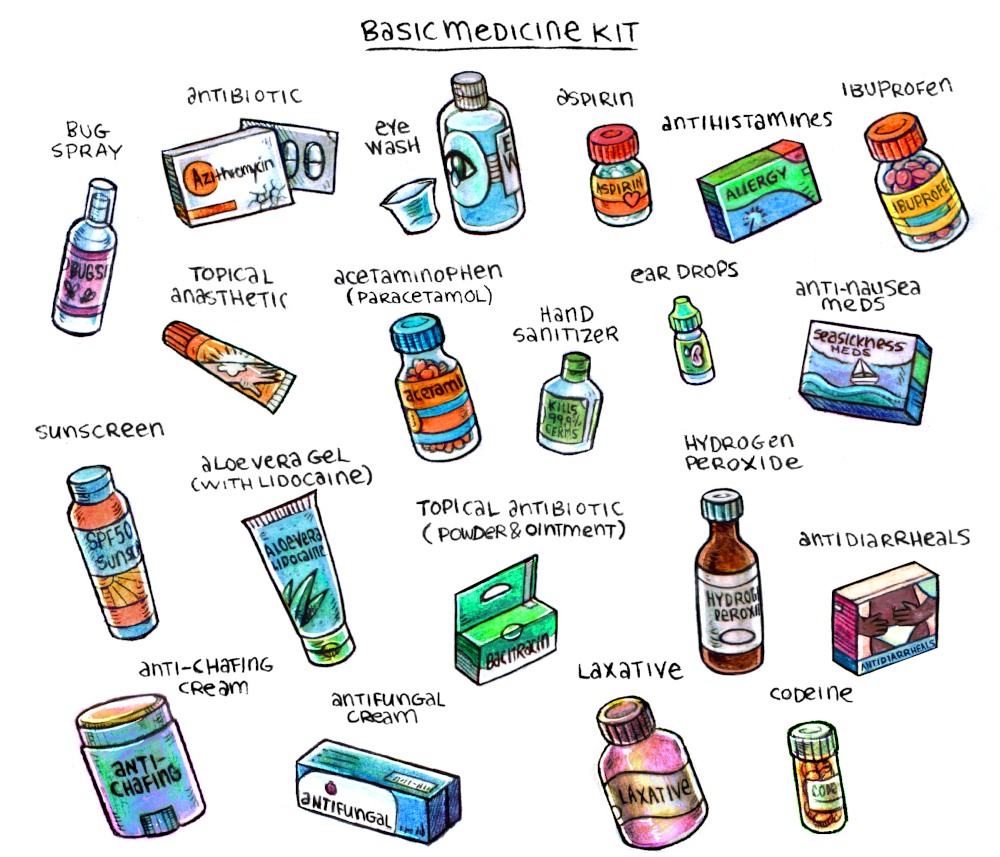 BASIC MEDICINE KIT
BUG
SPRAY
BUGS!
ANTIBIOTIC
Azithromycin
eye
WASH
ASPIRIN
ASPIRIN
ANTIHISTAMINES
ALLERGY
IBUPROFEN
IBUPROFE
TOPICAL
ANASTHETIC
ACETAMINOPHEN
(PARACETAMOL)
acetami
HAND
SANITIZER
KILLS
99.9%
GERMS
EAR DROPS
ANTI-NAUSEA
MEDS
SEASICKNESS
MEDS
SUNSCREEN
SPF50
SUNSC
ALOE VERA GEL
(WITH LIDOCAINE)
ALOEVERA
LIDOCAINE
TOPICAL ANTIBIOTIC
(POWDER & OINTMENT)
Bacitracin
HYDROGEN
PEROXIDE
HYDROG
PEROXI
ANTIDIARRHEALS
ANTIDIARRHEALS
ANTI-CHAFING
CREAM
ANTI-
CHAFING
ANTIFUNGAL
CREAM
ANTIFUNGAL
LAXATIVE
LAXATIVE
CODEINE
CODE